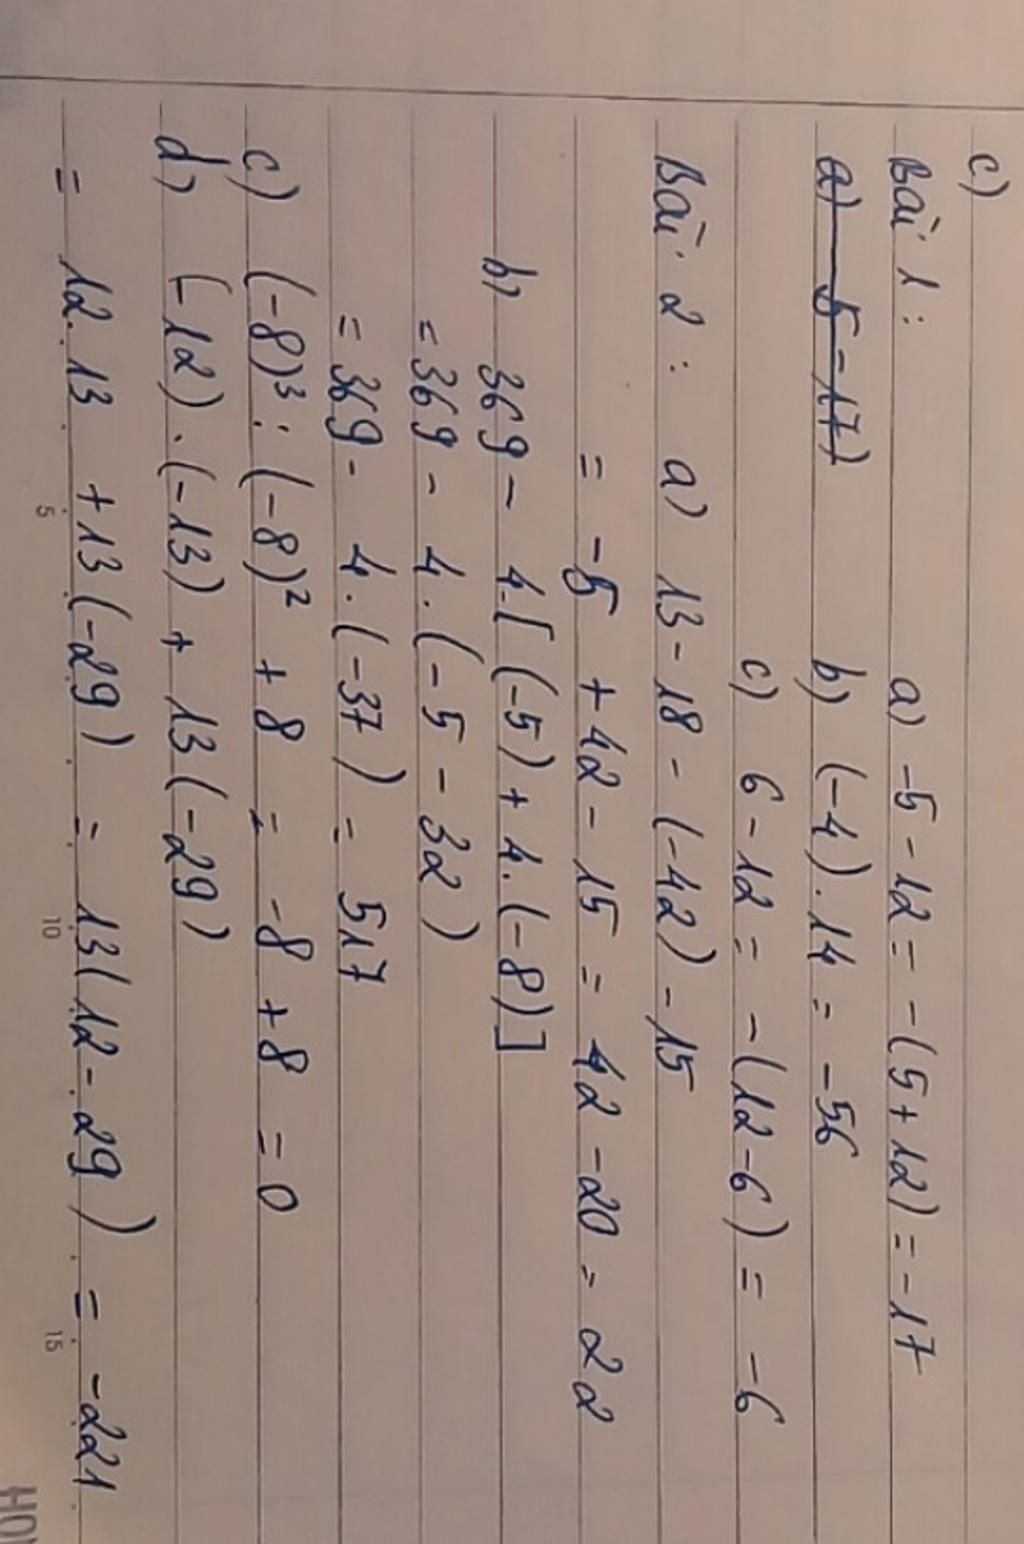 c)
Bài 1: a) -5 - 12 = -(5 + 12) = -17
a) 5 - 17) b) (-4) . 14 = -56
c) 6 - 12 = -(12 - 6) = -6
Bài 2: a) 13 - 18 - (-42) - 15
= -5 + 42 - 15 = 42 - 20 = 22
b) 369 - 4.[(-5) + 4.(-8)]
= 369 - 4.(-5 - 32)
= 369 - 4.(-37) = 517
c) (-8)³ : (-8)² + 8 = -8 + 8 = 0
d) (-12) . (-13) + 13(-29)
= 12. 13 + 13(-29) = 13(12 - 29) = -221
5 10 15